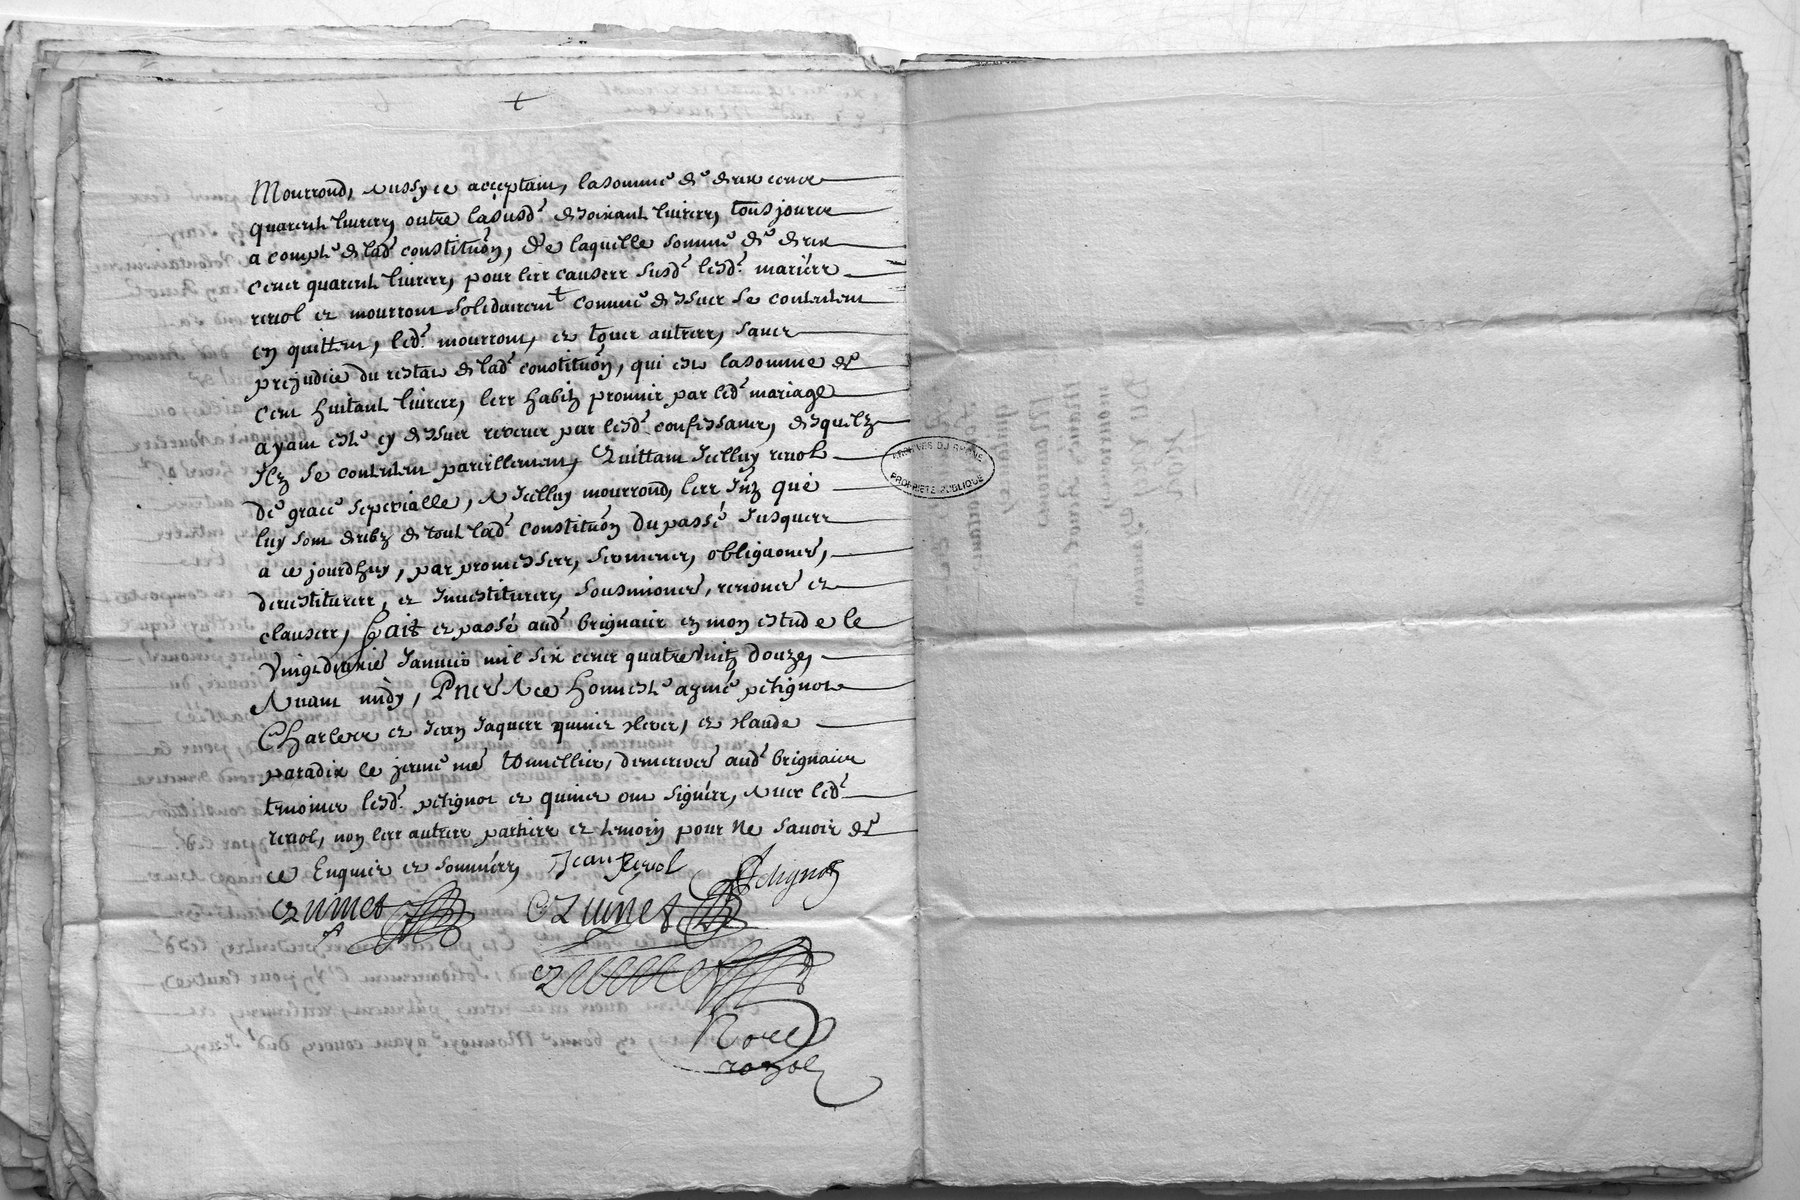 Mourrond, aussy ce acceptant, la somme de deux cents
quarente livres, outre la susd.e de soixante livres, tousjours
a compte de lad.e constituõn, de laquelle somme de deux
cents quarente livres, pour les causes susd.es lesd.s mariés
reriol et mourront solidairem.t comme dessus se contentent
en quittent, led.t mourront, et tous autres, sans
prejudice du restant de lad.e constituõn, qui est la somme de
cent huitante livres, les habitz promis par led.t mariage
ayant esté cy dessus receus par lesd.s confessants, desquelz
Ilz se contentent pareillement, Quittant Icelluy reriol
de grace speciale, a Icelluy mourrond, les Intz que
luy sont deubz de toute lad.e constituõn du passé Jusques
a ce jourdhuy, par promesses, serments, obligaõns,
devestitures, et Investitures, sousmiõns, renõnces et
clauses, fait et passé aud.t brignais en mon estude le
Vingt Janvier mil six cents quatre vintz douze,
Avant midy, Pnts A ce honneste aymé petignot
Charles et Jean Jaques quinet clercs, et claude
paradix le jeune me tonnellier, demeurs aud.t brignais
temoins lesd.s petignot et quinet ont signés, avec led.t
reriol, non les autres parties et temoin pour ne savoir de
ce Enquis et sommés, Jean Reriol Petignot
Quinet Quinet
Quinet
ARCHIVES DU RHONE
PROPRIÉTÉ PUBLIQUE